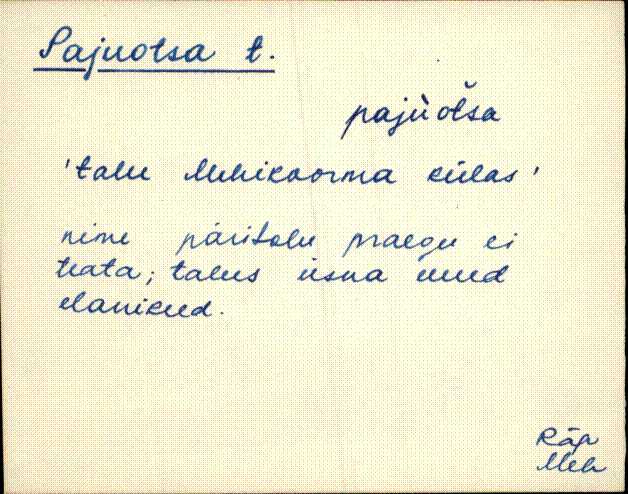 Pajuotsa t.
pajùotsa
'talu Mehikoorma külas'
nime päritolu praegu ei
teata; talus üsna uued
elanikud.
Räp
Meh